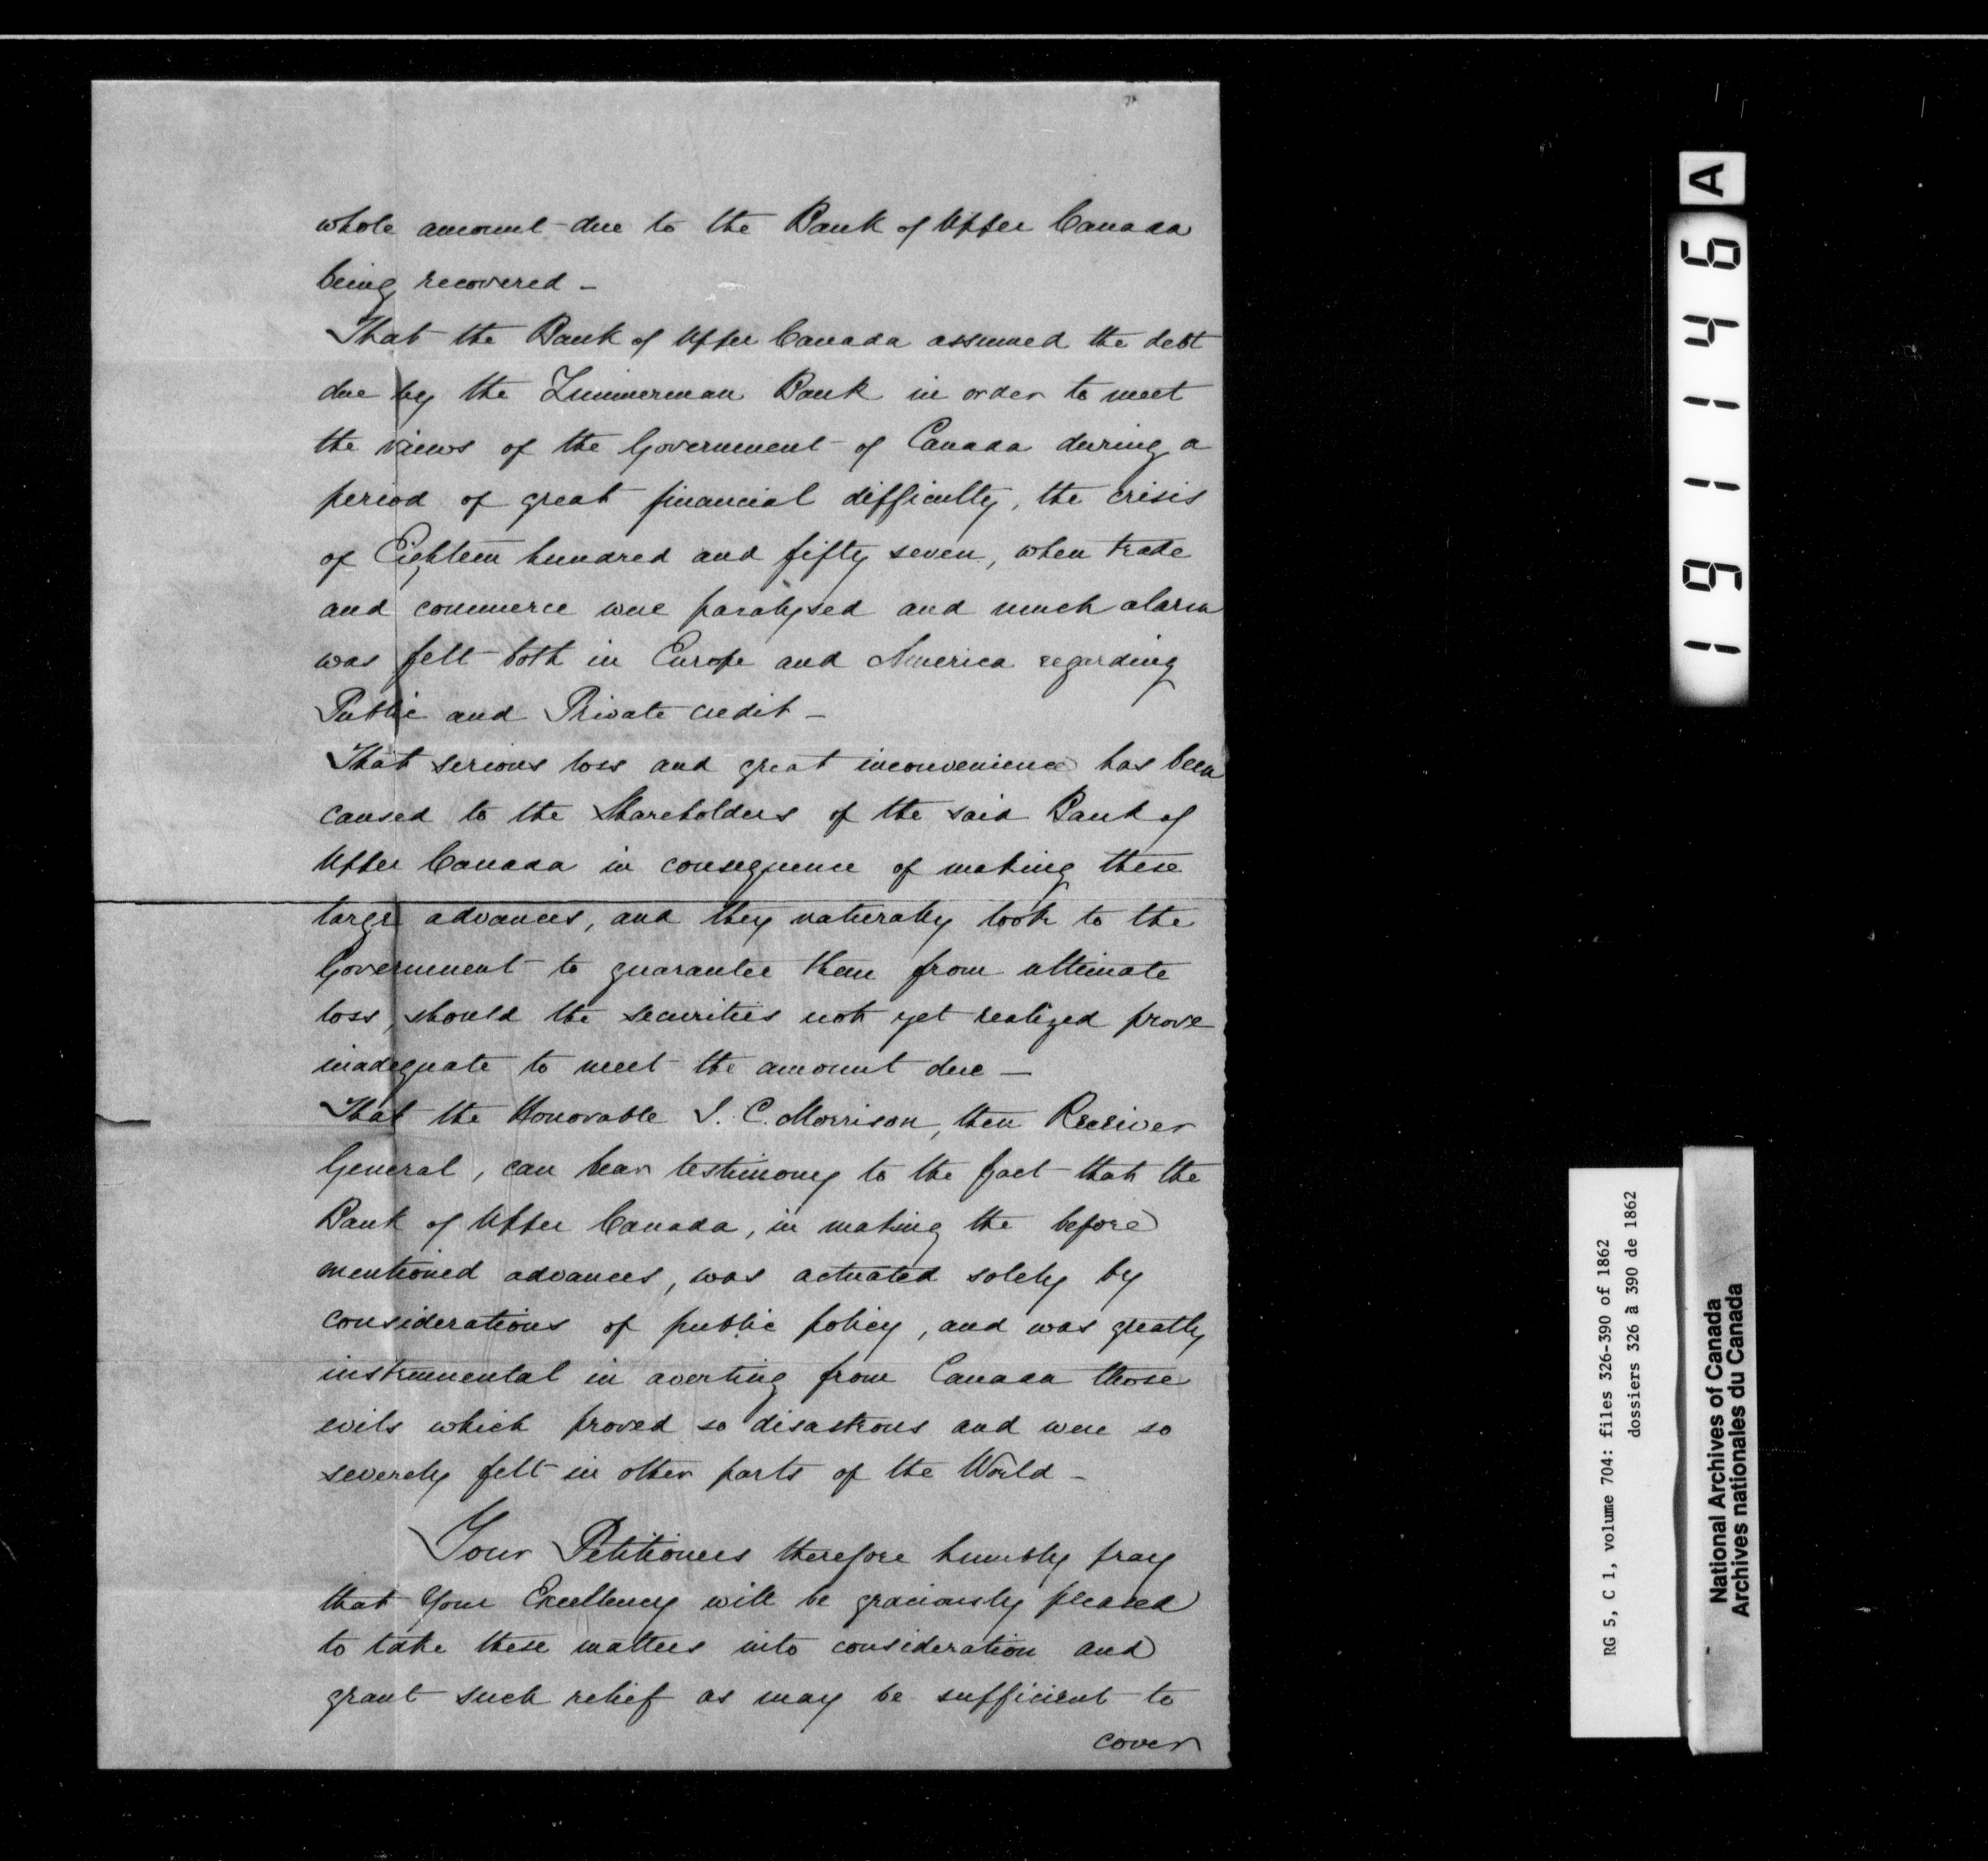 whole amount due to the Bank of Upper Canada
being recovered -
That the Bank of Upper Canada assumed the debt
due by the Zimmerman Bank in order to meet
the views of the Government of Canada during a
period of great financial difficulty, the crisis
of Eighteen hundred and fifty seven, when trade
and commerce were paralysed and much alarm
was felt both in Europe and America regarding
Public and Private credit -
That serious loss and great inconvenience has been
caused to the Shareholders of the said Bank of
Upper Canada in consequence of making these
large advances, and they naturally look to the
Government to guarantee them from ultimate
loss, should the securities not yet realized prove
inadequate to meet the amount due -
That the Honorable J. C. Morrison, then Receiver
General, can bear testimony to the fact that the
Bank of Upper Canada, in making the before
mentioned advances, was actuated solely by
considerations of public policy, and was greatly
instrumental in averting from Canada those
evils which proved so disastrous and were so
severely felt in other parts of the World -
Your Petitioners therefore humbly pray
that Your Excellency will be graciously pleased
to take these matters into consideration and
grant such relief as may be sufficient to
cover
191146 A
RG 5, C 1, volume 704: files 326-390 of 1862
dossiers 326 à 390 de 1862
National Archives of Canada
Archives nationales du Canada